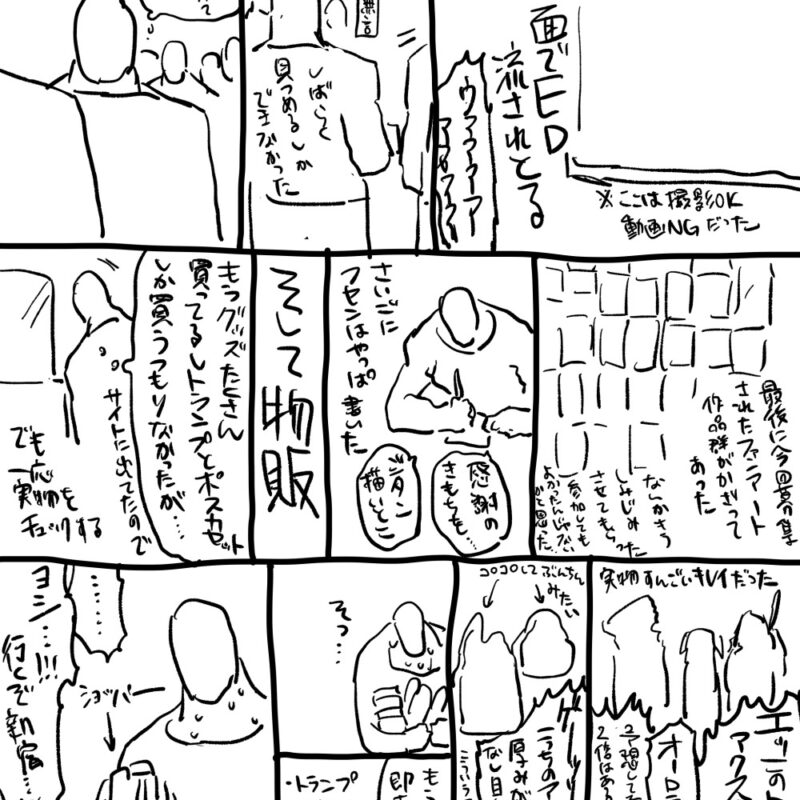 面でED
流されとる
※ここは撮影OK
動画NGだった
しばらく
見つめるしか
できなかった
無言
って
最後に今回募集
されたファンアート
作品群がかざって
あった
しみじみ
させてもらった
参加しても
よかったんじゃない
かと思った
さいごに
フセンはやっぱ書いた
感謝の
きもちを…
描いとこ
そして物販
もうグッズたくさん
買ってるしトランプとポスカセット
しか買うつもりなかったが…
サイトに出てたので
でも一応
実物を
チェックする
実物すんごいキレイだった
コロコロしてぶんちん
みたい
エッこの
アクス
オーロラ
2倍はある
こっちのア
厚みが
なし
そっ…
・トランプ
もう
即
………
ショッパー
ヨシ…!!!
行くぞ新宿…